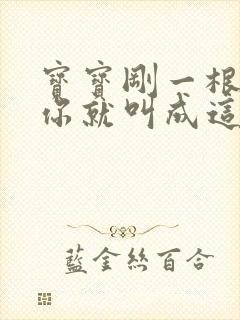 寶寶剛一根
你就叫成這
藍金絲百合